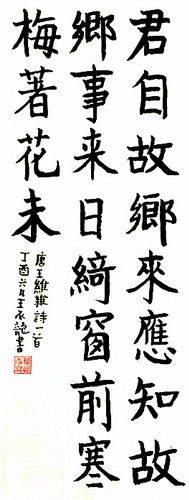 君自故鄉來應知故
鄉事来日綺窗前寒
梅著花未
唐王維雜詩一首
丁酉六月王永龍書